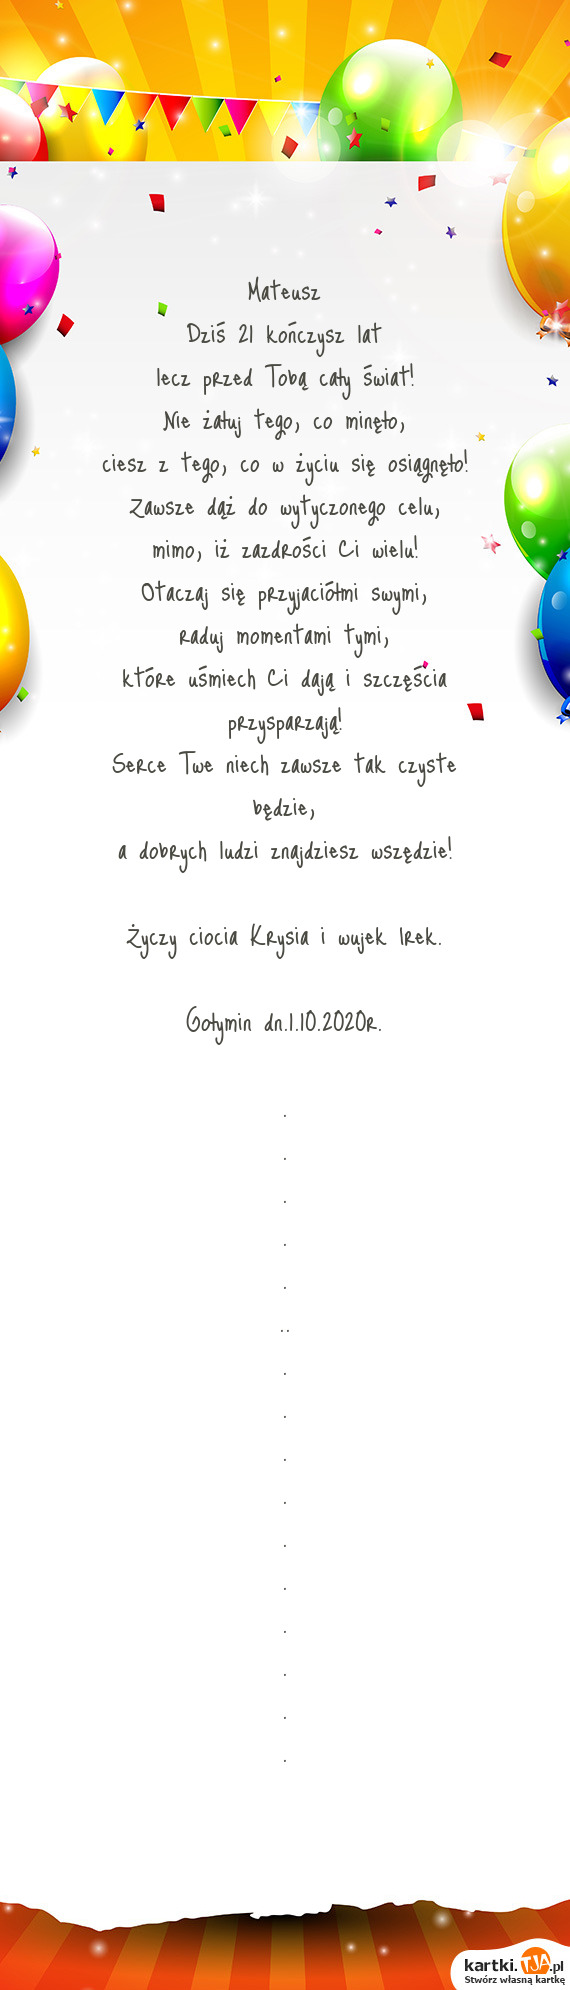 Mateusz
Dziś 21 kończysz lat
lecz przed Tobą cały świat!
Nie żałuj tego, co minęło,
ciesz z tego, co w życiu się osiągnęło!
Zawsze dąż do wytyczonego celu,
mimo, iż zazdrości Ci wielu!
Otaczaj się przyjaciółmi swymi,
raduj momentami tymi,
które uśmiech Ci dają i szczęścia
przysparzają!
Serce Twe niech zawsze tak czyste
będzie,
a dobrych ludzi znajdziesz wszędzie!
Życzy ciocia Krysia i wujek Irek.
Gołymin dn.1.10.2020r.
.
.
.
.
.
..
.
.
.
.
.
.
.
.
.
.
kartki.TJA.pl
Stwórz własną kartkę